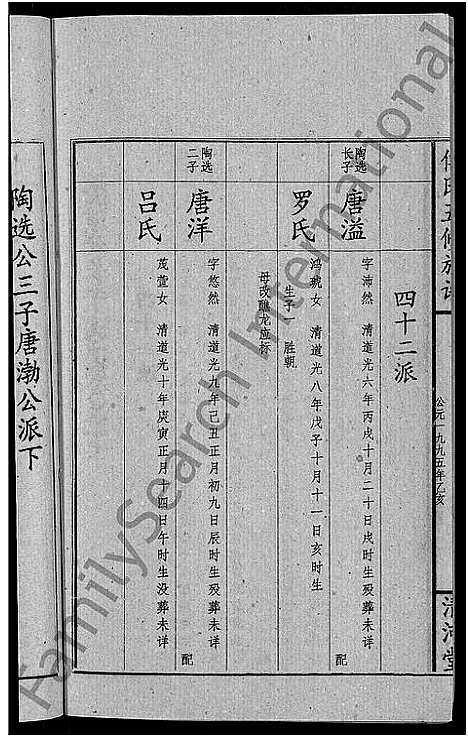 氏五修族
公元一九九五年乙亥
清河堂
四十二派
陶选
长子
唐溢
字沛然 清道光六年丙戌十月二十日戌时生殁葬未详
配
罗氏
鸿琥女 清道光八年戊子十月十一日亥时生
生子 胜朝
母改醮龙应标
陶选
二子
唐洋
字悠然 清道光九年己丑正月初九日辰时生殁葬未详
配
吕氏
茂萱女 清道光十年庚寅正月十四日午时生没葬未详
陶选公三子唐渤公派下
FamilySearch International